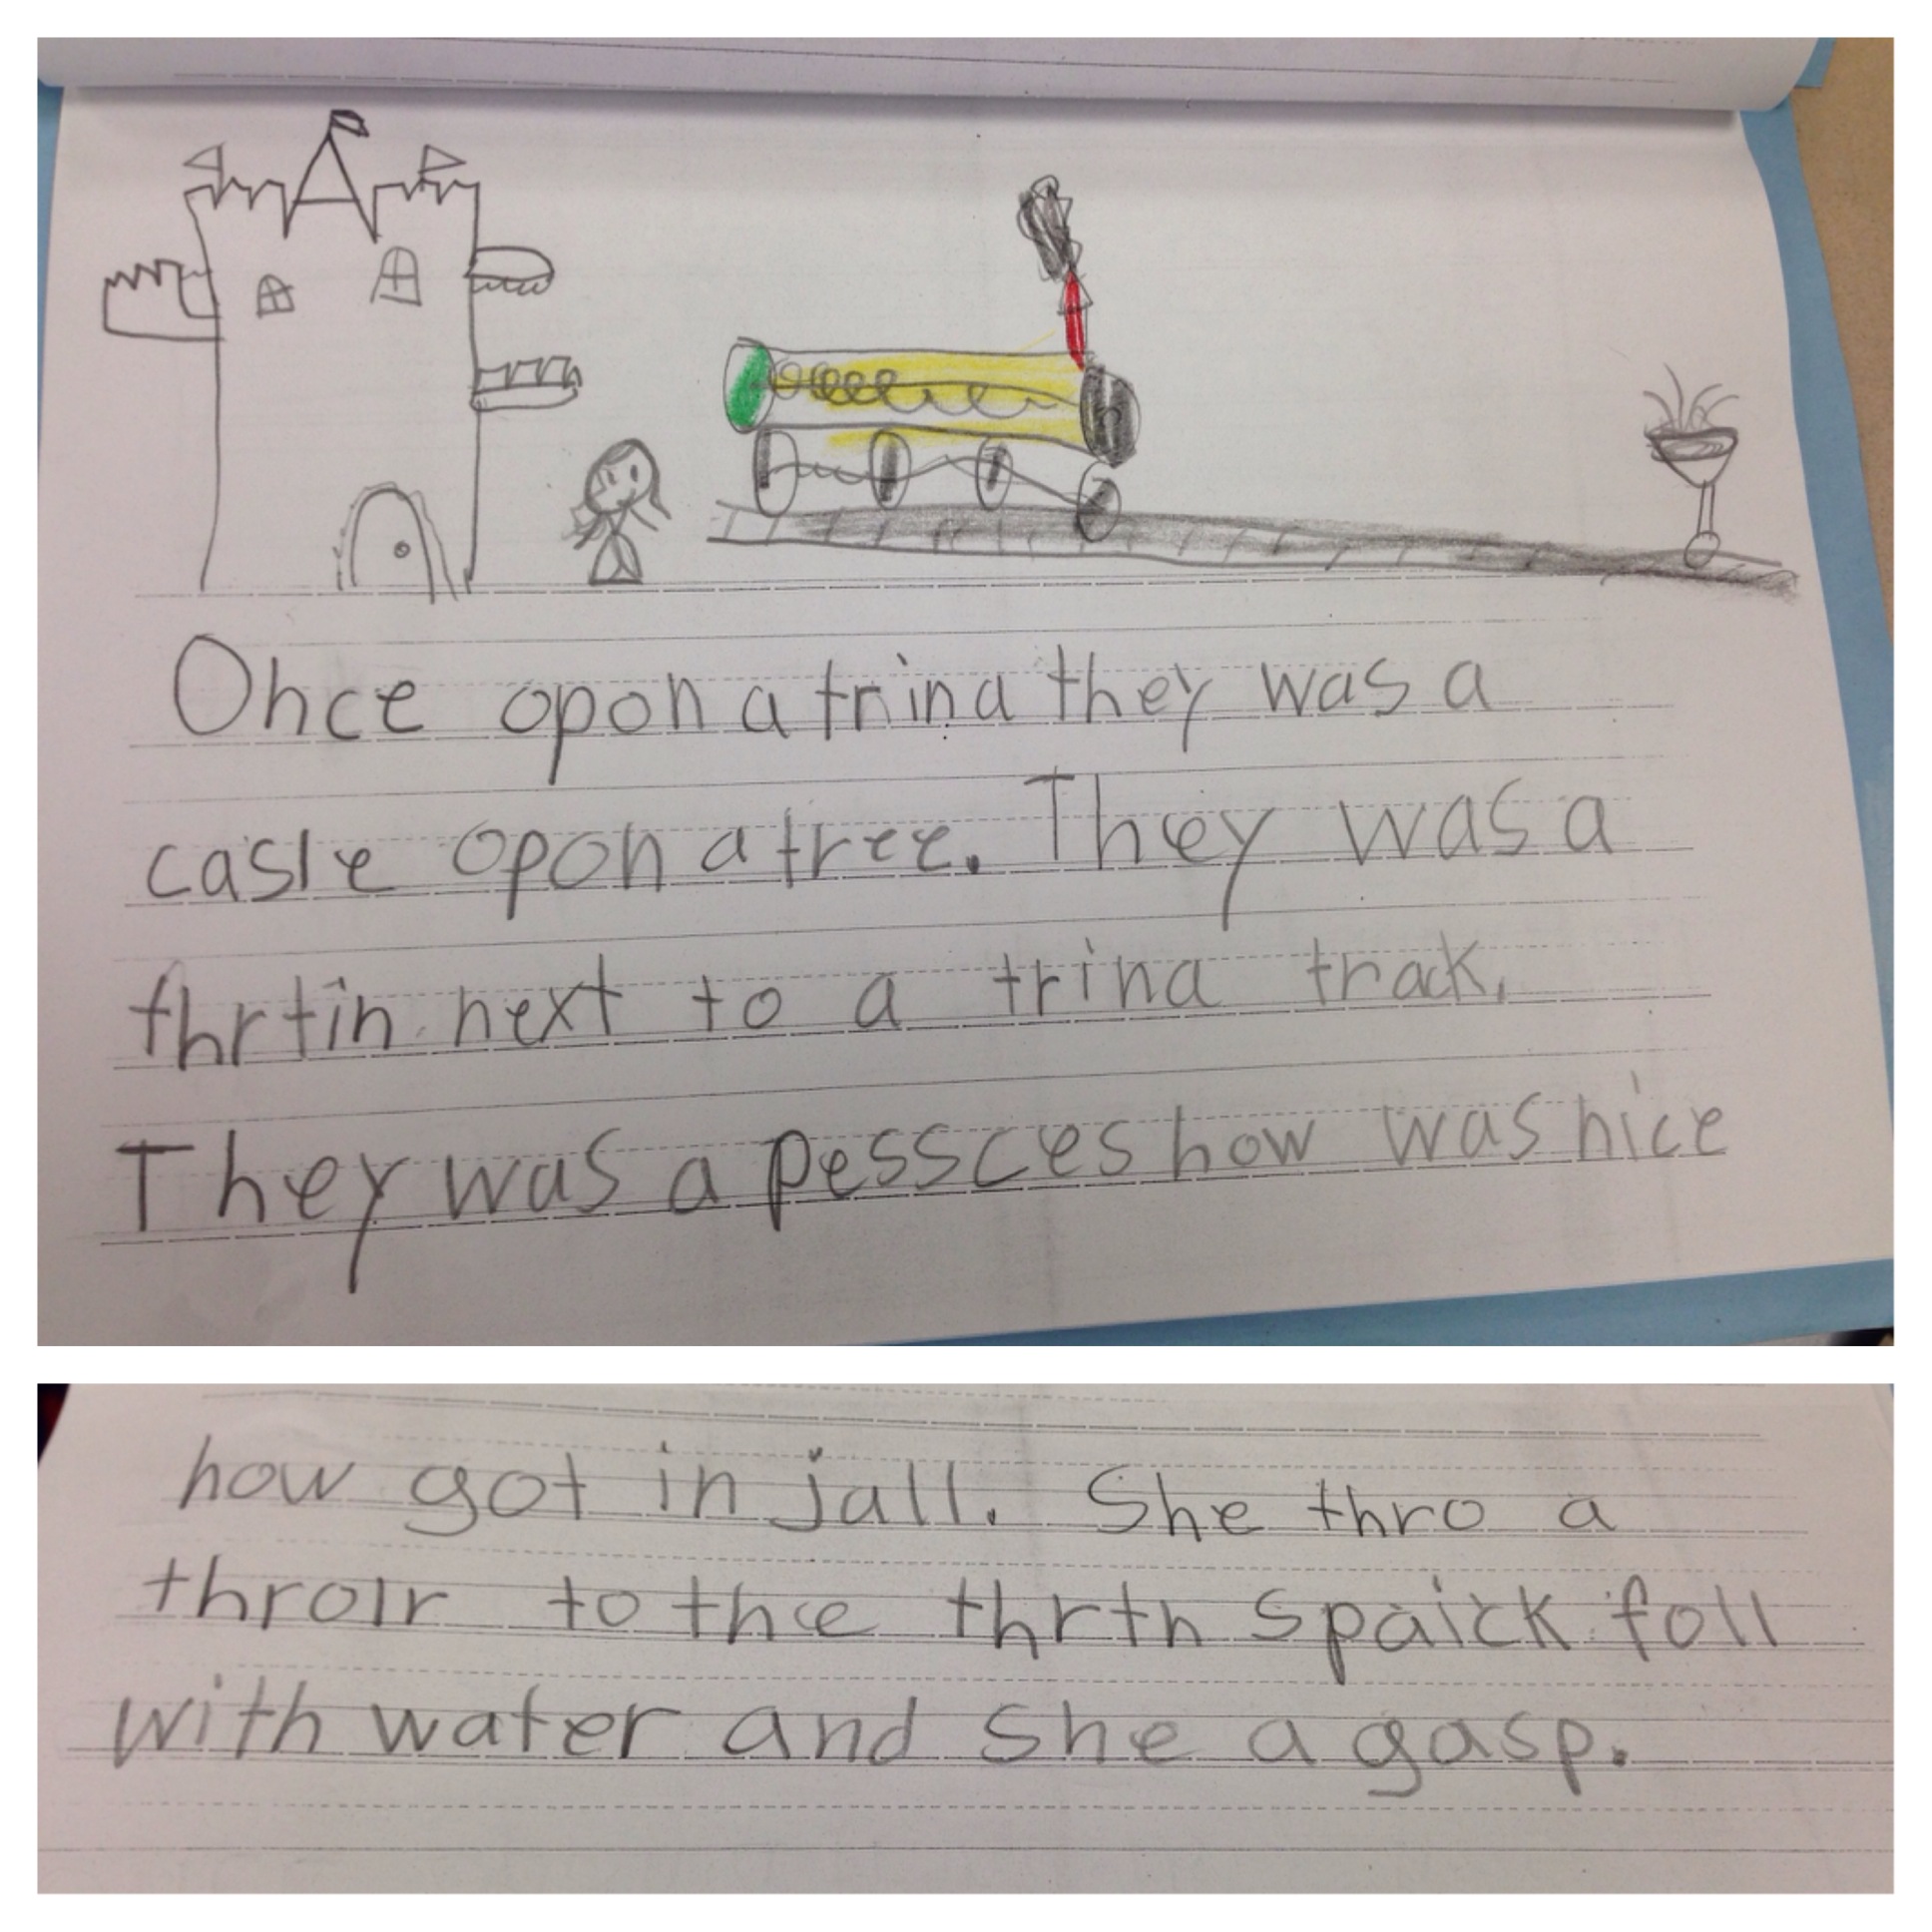 Once opon a trina they was a
casle opon a tree. They was a
thrtin next to a trina track.
They was a pessces how was nice
how got in jall. She thro a
throlr to the thrtn spaick foll
with water and she a gasp.